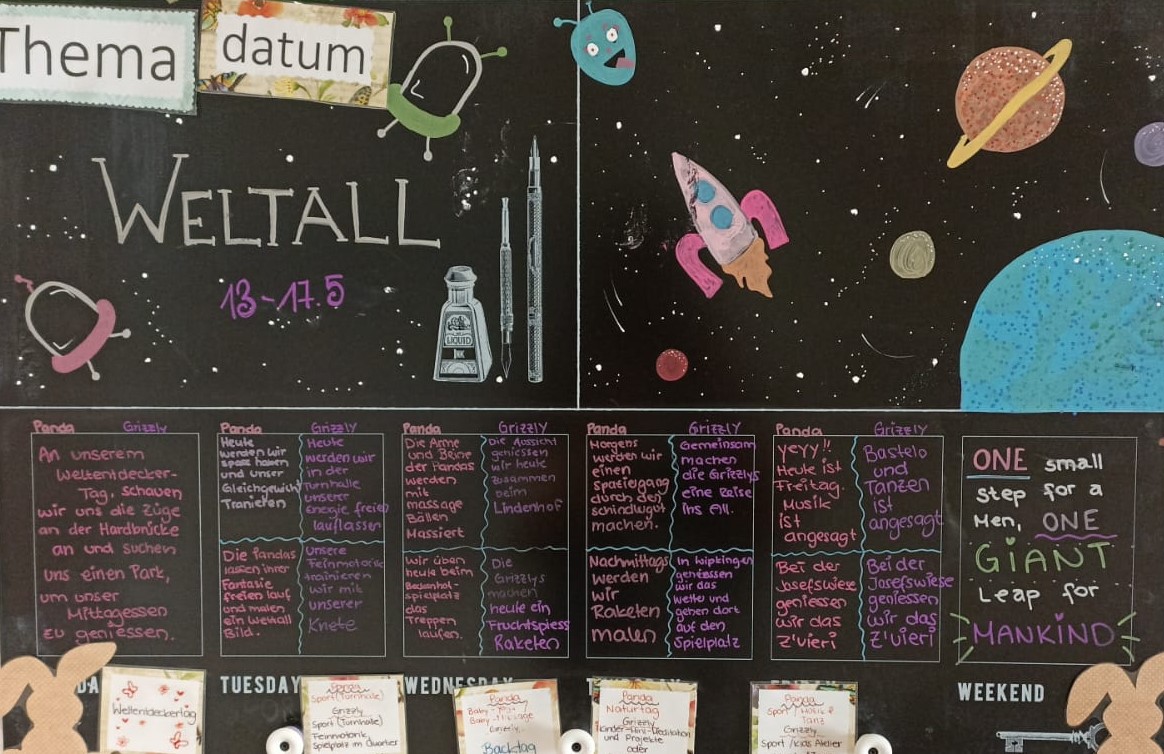 Thema
datum
WELTALL
13-17.5
LIQUID
INK
Panda Grizzly
An unserem
Weltentdecker-
Tag, schauen
wir uns die Züge
an der Hardbrücke
an und suchen
uns einen Park,
um unser
Mittagessen
zu geniessen.
Panda
Heute
werden wir
spass haben
und unser
Gleichgewicht
Tranieren
Grizzly
Heute
werden wir
in der
Turnhalle
unserer
energie freien
lauflassen
Die Pandas
lassen ihrer
Fantasie
freien lauf
und malen
ein Weltall
Bild.
Unsere
Feinmotorik
trainieren
wir mit
unserer
Knete
Panda
Die Arme
und Beine
der Pandas
werden
mit
massage
Bällen
Massiert
Grizzly
Die Aussicht
geniessen
wir heute
zusammen
beim
Lindenhof
Wir üben
heute beim
spielplatz
das
Treppen
laufen.
Die
Grizzlys
machen
heute ein
Fruchtspiess
Raketen
Panda
Morgens
werden wir
einen
spaziergang
durch den
schindlwgut
machen.
Grizzly
Gemeinsam
machen
die Grizzlys
eine Reise
ins All.
Nachmittags
werden
wir
Raketen
malen
In Wipkingen
geniessen
wir das
wetter und
gehen dort
auf den
Spielplatz
Panda
yeyy!!
Heute ist
Freitag.
Musik
ist
angesagt
Grizzly
Basteln
und
Tanzen
ist
angesagt
Bei der
Josefswiese
geniessen
wir das
Z'vieri
Bei der
Josefswiese
geniessen
wir das
Z'vieri
ONE small
step for a
Men, ONE
GIANT
Leap for
MANKIND
DA
TUESDAY
WEDNESDAY
WEEKEND
Weltentdeckertag
Sport (Turnhalle)
Grizzly
Sport (Turnhalle)
Feinmotorik,
Spielplatz im Quartier
Panda
Baby-Yoga
Baby-Massage
Grizzly
Backtag
Panda
Naturtag
Grizzly
Kinder-Mini-Meditation
und Projekte
oder
Panda
Sport / Musik &
Tanz
Grizzly
Sport / Kids Atelier